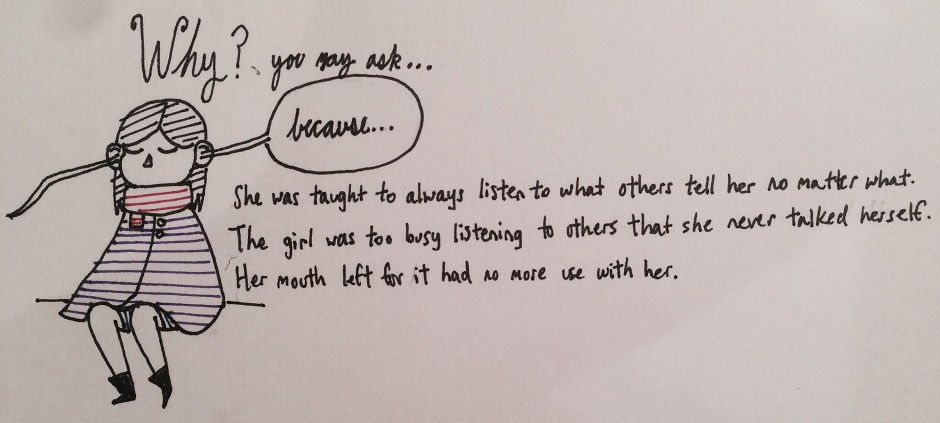 Why? you may ask...
because...
She was taught to always listen to what others tell her no matter what.
The girl was too busy listening to others that she never talked herself.
Her mouth left for it had no more use with her.